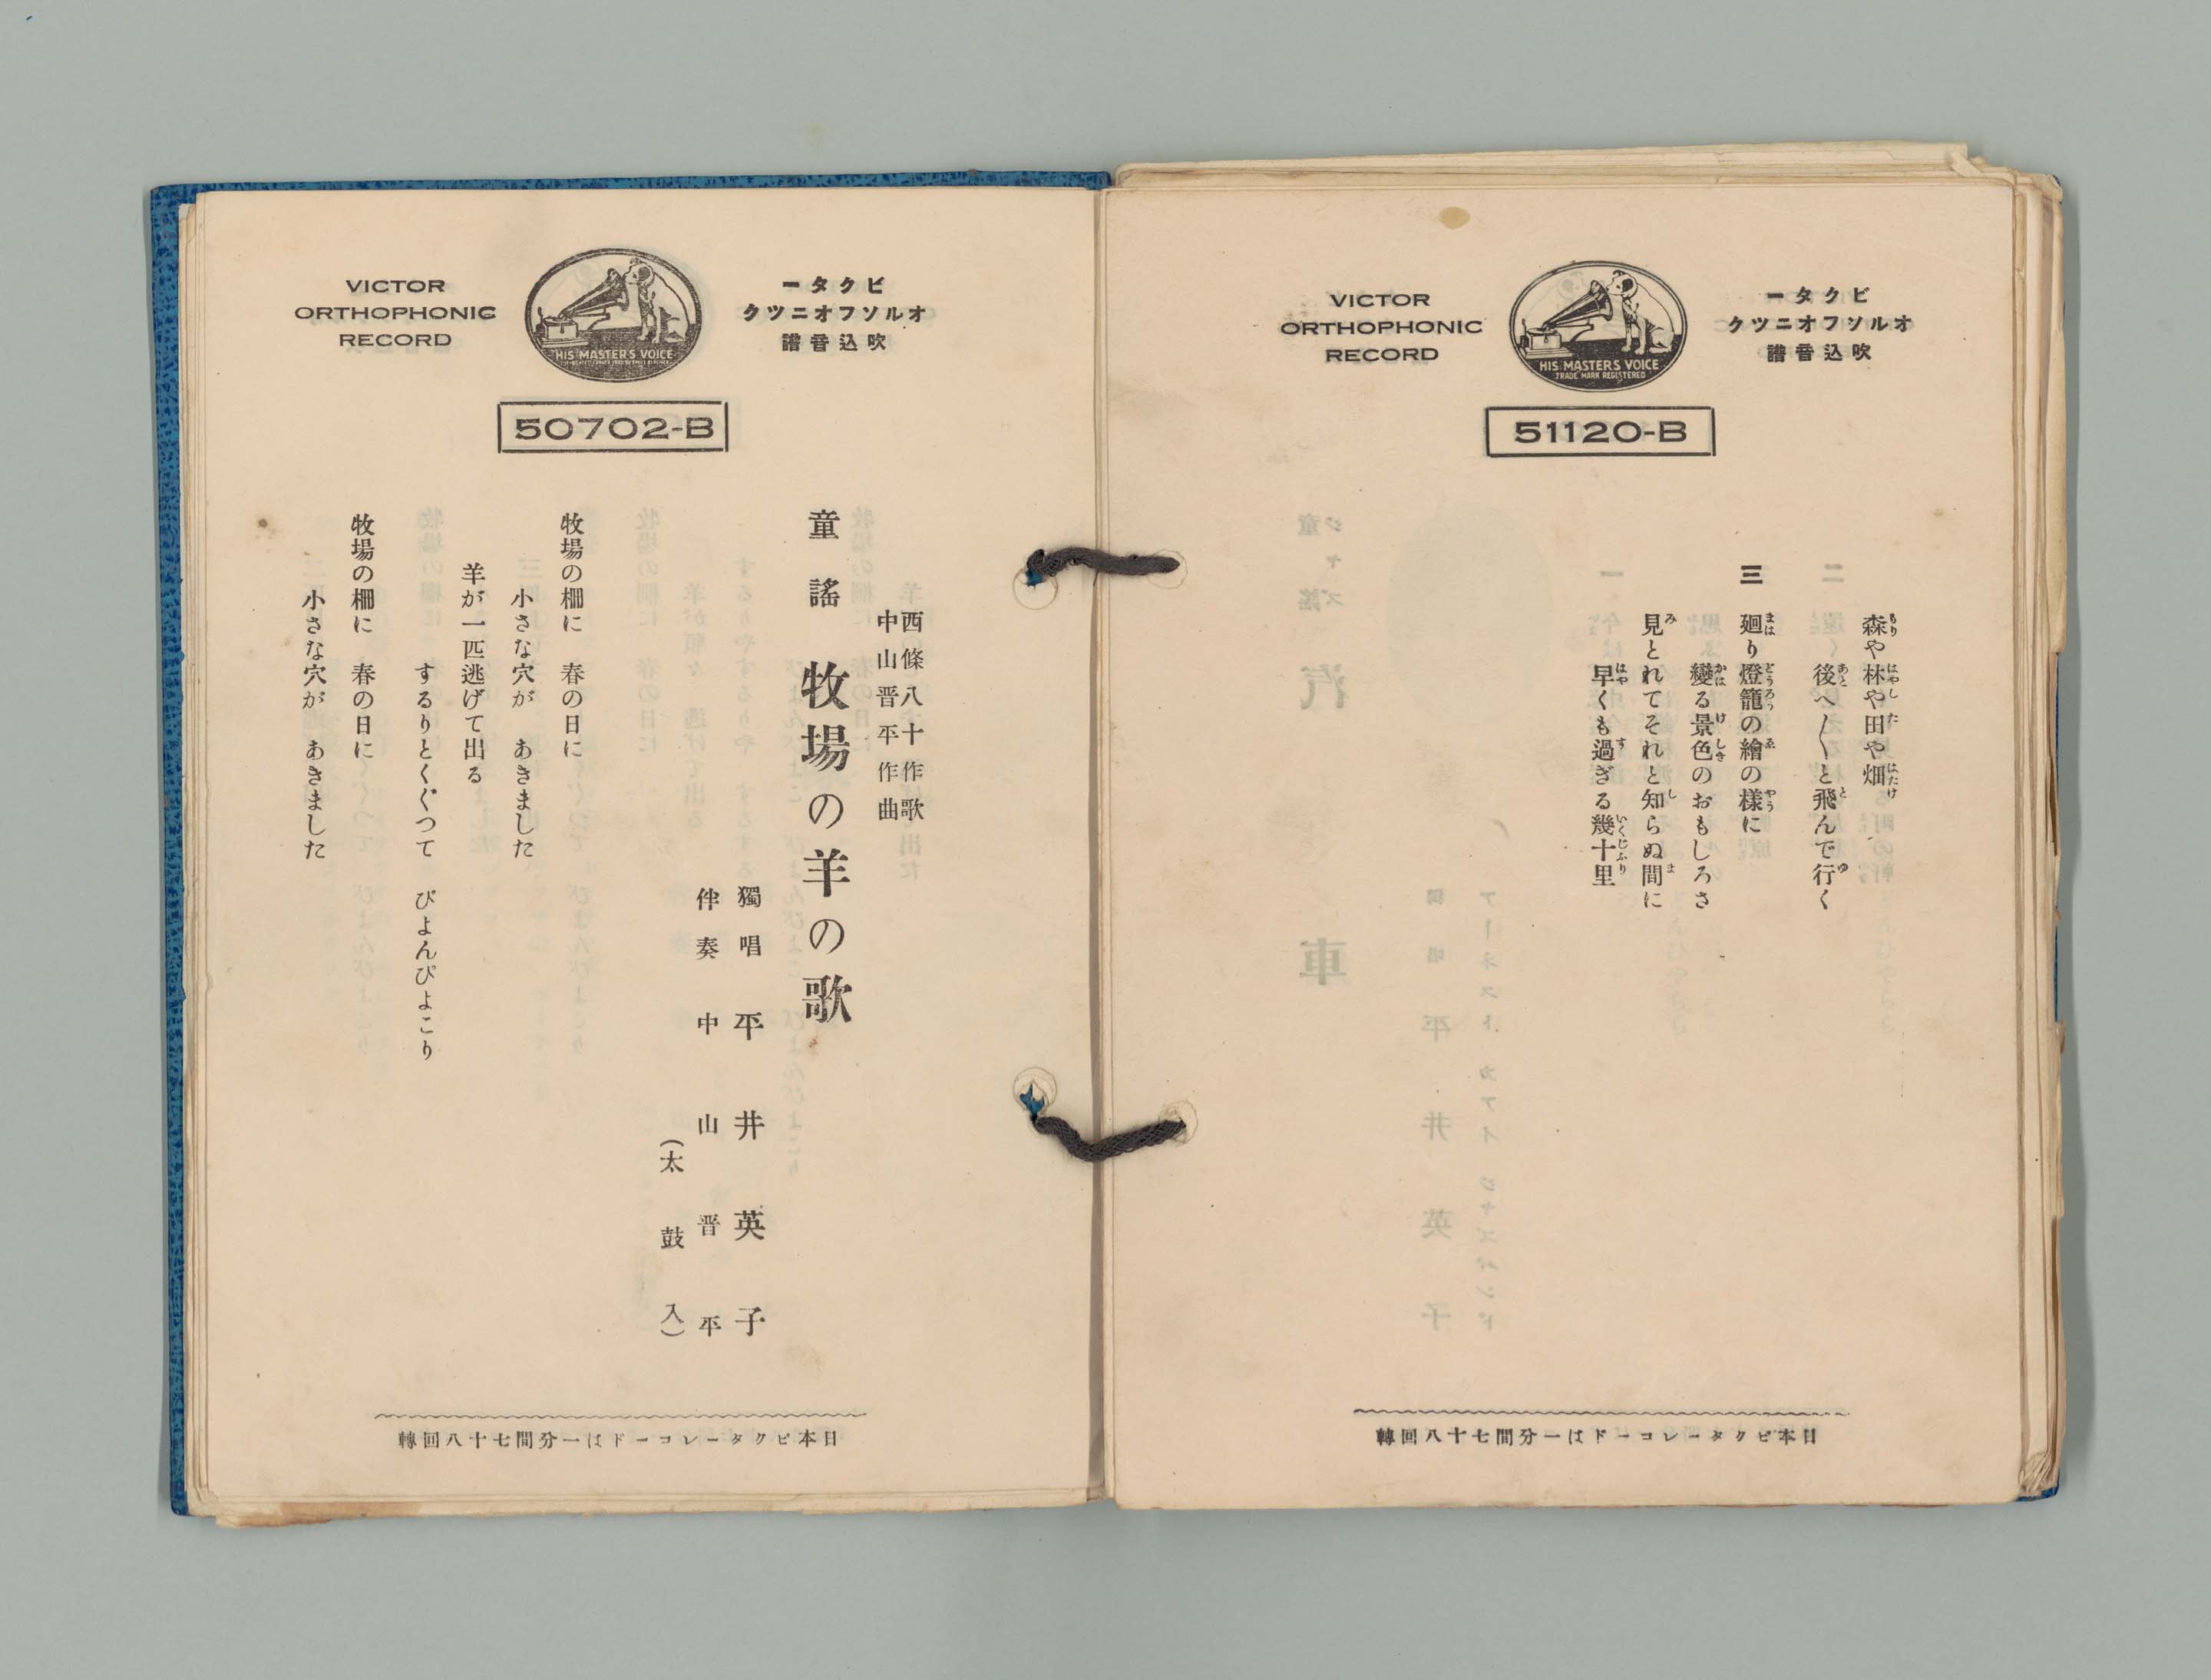 VICTOR
ORTHOPHONIC
RECORD
HIS MASTER'S VOICE
TRADE MARK REGISTERED
ビクター
オルソフオニツク
吹込音譜
51120-B
森や林や田や畑
後へ〱と飛んで行く
三 廻り燈籠の繪の様に
變る景色のおもしろさ
見とれてそれと知らぬ間に
早くも過ぎる幾十里
日本ビクターレコードは一分間七十八回轉
VICTOR
ORTHOPHONIC
RECORD
HIS MASTER'S VOICE
ビクター
オルソフオニツク
吹込音譜
50702-B
西條八十作歌
中山晋平作曲
童謠 牧場の羊の歌
獨唱 平井英子
伴奏 中山晋平
(太鼓入)
牧場の柵に 春の日に
小さな穴が あきました
羊が一匹逃げて出る
するりとくぐつて ぴよんぴよこり
牧場の柵に 春の日に
小さな穴が あきました
日本ビクターレコードは一分間七十八回轉